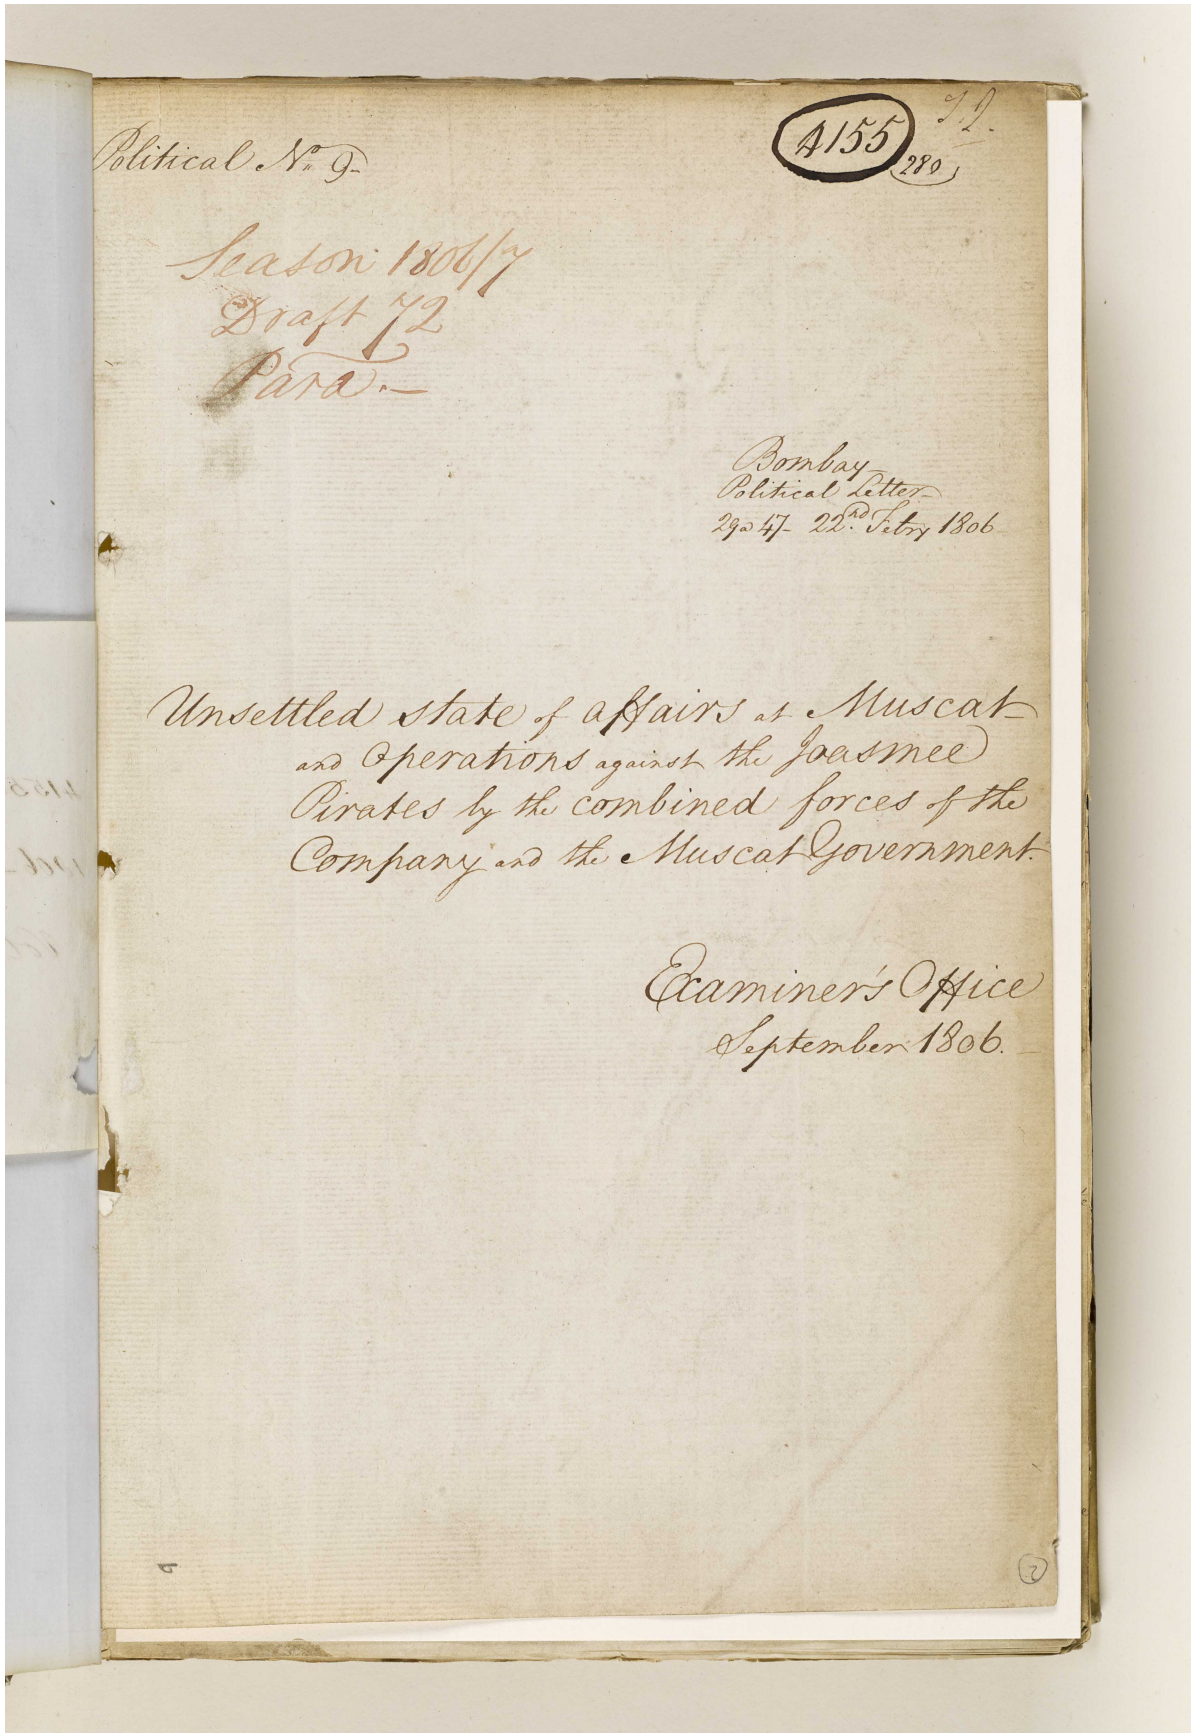 Political No. 9
4155
280
Season 1806/7
Draft 72
Para.
Bombay
Political Letter
29 a 47 - 22nd. Febry 1806
Unsettled state of affairs at Muscat
and Operations against the Joasmee
Pirates by the combined forces of the
Company and the Muscat Government.
Examiner's Office
September 1806.
9
2